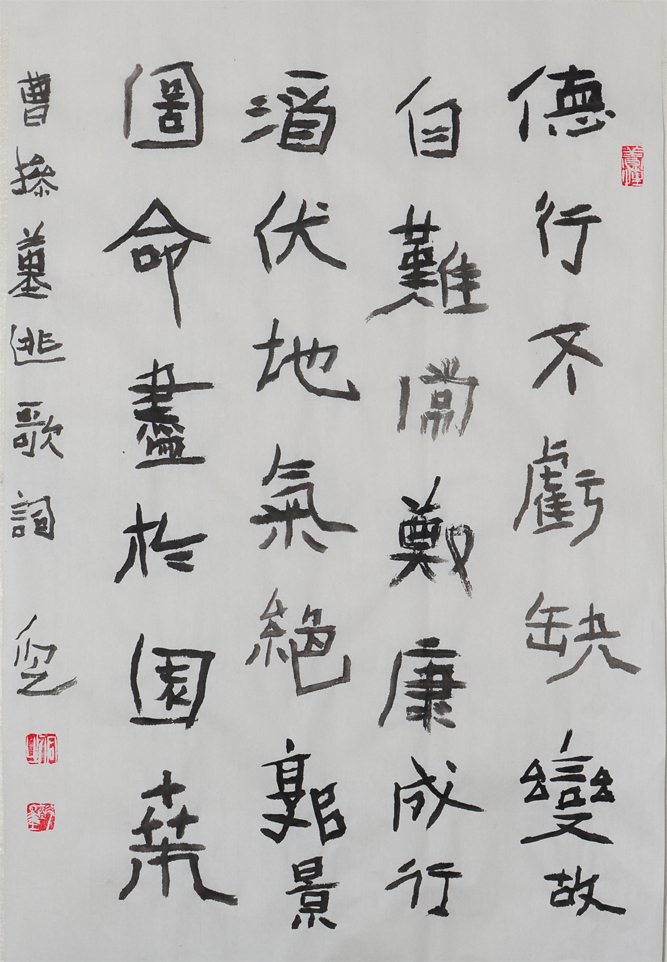 德行不虧缺變故
自難常鄭康成行
酒伏地氣絕郭景
圖命盡於園桑
曹操董逃歌詞